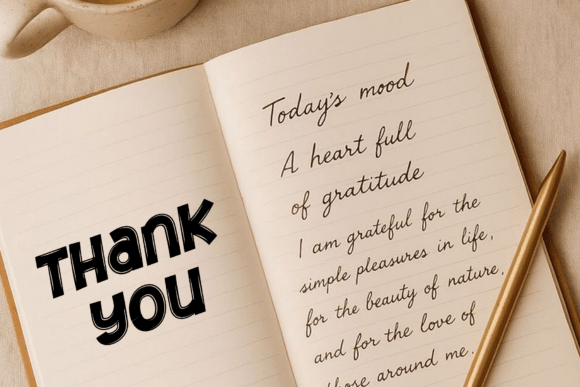 THaNK
YOU
Today's mood
A heart full
of gratitude
I am grateful for the
simple pleasures in life,
for the beauty of nature,
and for the love of
those around me.